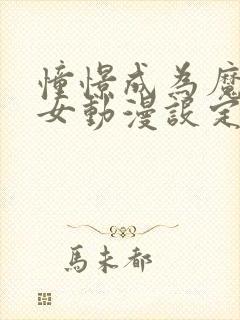 憧憬成為魔
女動漫設定
馬未都